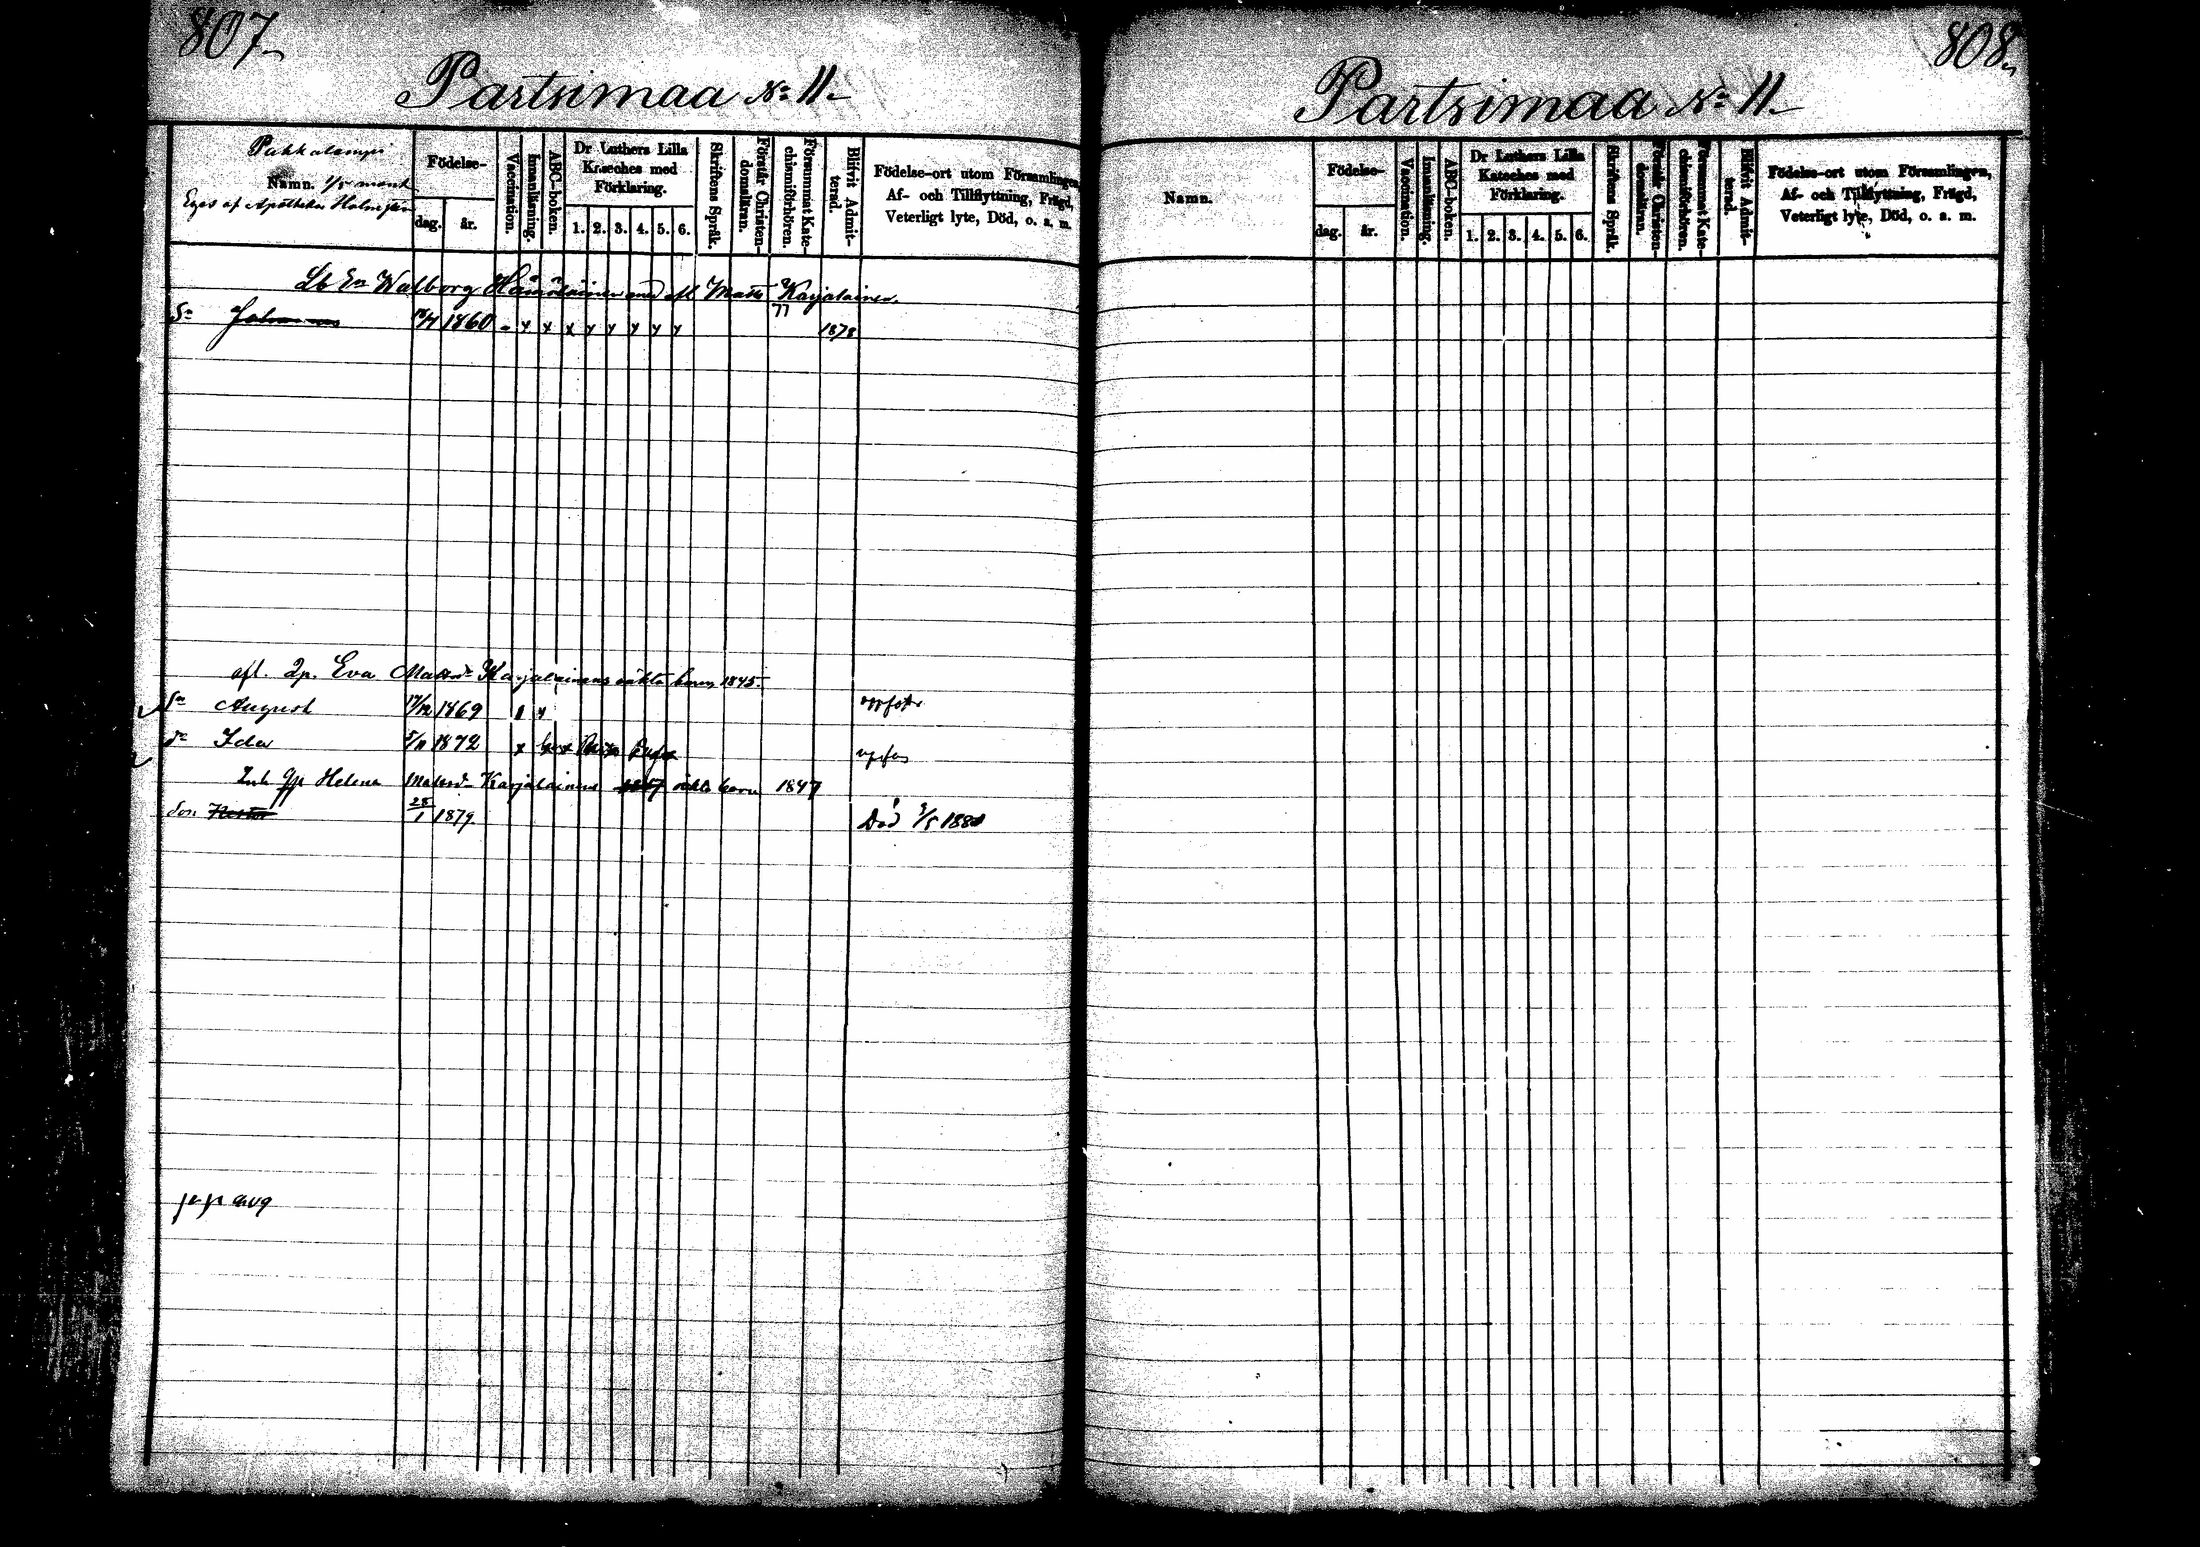 807
Partsimaa No 11
Pakkalampi
Namn.
Eges af Apothekar
Födelse-
dag.
år.
Vaccination.
Innanläsning.
ABC-boken.
Dr Luthers Lilla
Kateches med
Förklaring.
1. 2. 3. 4. 5. 6.
Skriftens Språk.
Förstår Christen-
domsläran.
Försummat Kate-
chismiförhören.
Blifvit Admit-
terad.
Födelse-ort utom Församlingen,
Af- och Tillflyttning, Frägd,
Veterligt lyte, Död, o. s. m.
Walborg Hämäläinen med afl Matts Karjalainen.
Sn Johannes 1860 - x x x y y y y y 77 1878
afl. Qp. Eva Mattsdr Karjalainens oäkta barn 1845.
Sn August 17/12 1869
dr Ida 5/11 1872
Inh Qp Helena Mattsdr Karjalainens oäkta barn 1847
Son 28/1 1879 Död 3/5 1880
808
Partsimaa No 11
Namn.
Födelse-
dag.
år.
Vaccination.
Innanläsning.
ABC-boken.
Dr Luthers Lilla
Kateches med
Förklaring.
1. 2. 3. 4. 5. 6.
Skriftens Språk.
Förstår Christen-
domsläran.
Försummat Kate-
chismiförhören.
Blifvit Admit-
terad.
Födelse-ort utom Församlingen,
Af- och Tillflyttning, Frägd,
Veterligt lyte, Död, o. s. m.